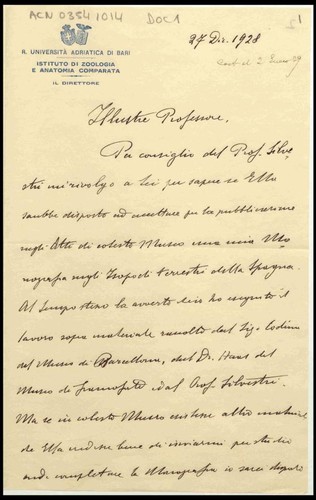 ACN 0354/014 DOC1
R. UNIVERSITÀ ADRIATICA DI BARI
ISTITUTO DI ZOOLOGIA
E ANATOMIA COMPARATA
IL DIRETTORE
27 Dic. 1928
1
Cont. el 2 Enero 29
Illustre Professore,
Per consiglio del Prof. Silve
stri mi rivolgo a Lei per sapere se Ella
sarebbe disposto ad accettare per la pubblicazione
negli Atti di codesto Museo una mia Mo
nografia sugli Isopodi terrestri della Spagna.
Al tempo stesso la avverto che ho eseguito il
lavoro sopra materiale raccolto dal Sig. Codina
del Museo di Barcellona, dal Dr. Haas del
Museo di e dal Prof. Silvestri.
Ma se in codesto Museo esistesse altro materia
le che Ella credesse bene di inviarmi per studio
onde completare la Monografia io sarei disposto